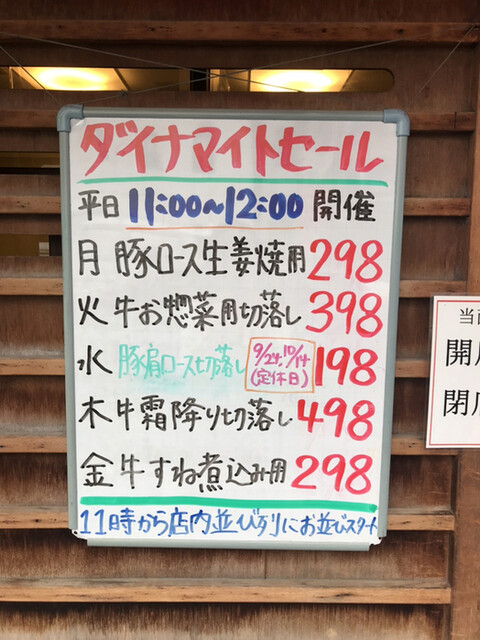 ダイナマイトセール
平日 11:00~12:00 開催
月 豚ロース生姜焼用 298
火 牛お惣菜用切落し 398
水 豚肩ロース切落し 9/24.10/14 (定休日) 198
木 牛霜降り切落し 498
金 牛すね煮込み用 298
11時から店内並び列にお並びスタート
開
閉